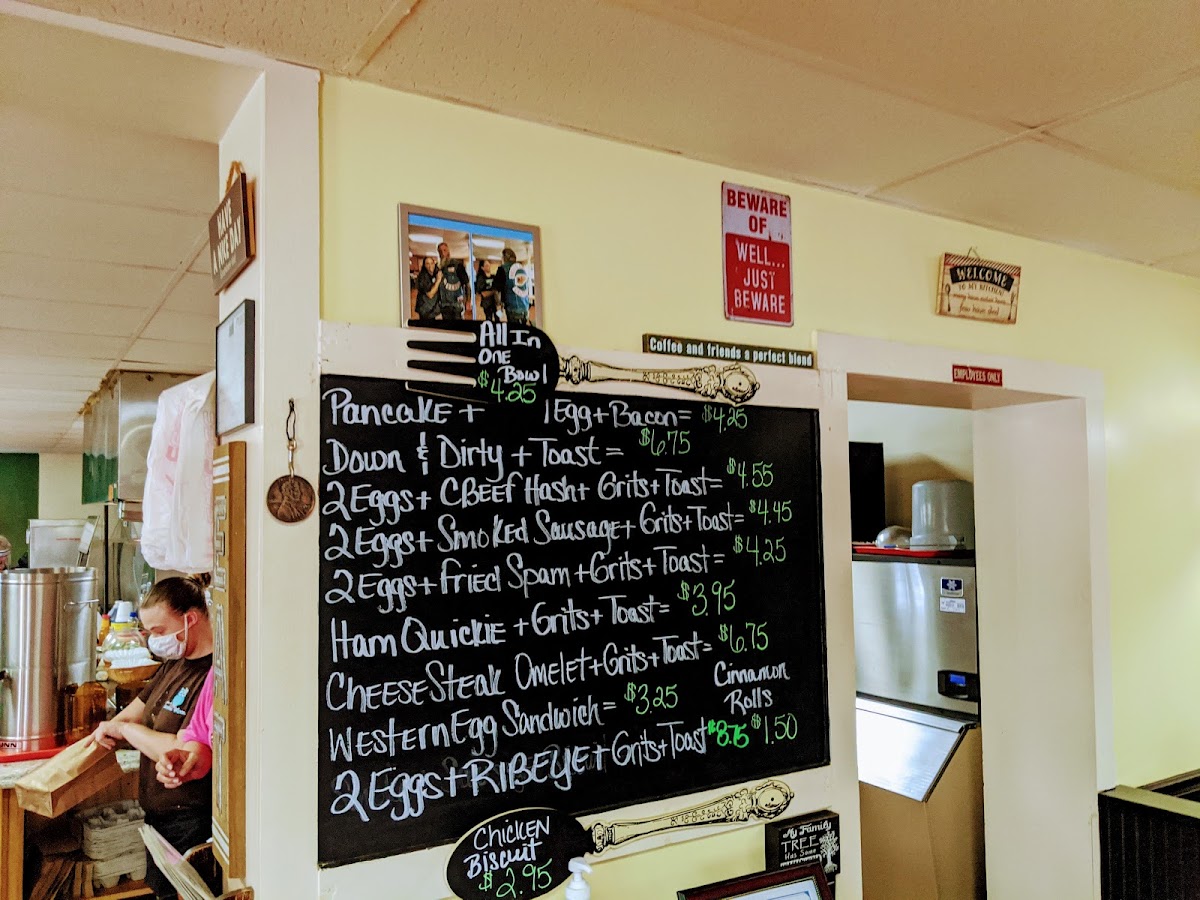 HAVE
A NICE DAY
BEWARE
OF
WELL...
JUST
BEWARE
WELCOME
TO MY KITCHEN
EMPLOYEES ONLY
Coffee and friends a perfect blend
All In
One
Bowl
$4.25
Pancake + 1 Egg + Bacon = $4.25
Down & Dirty + Toast = $6.75
2 Eggs + CBeef Hash + Grits + Toast = $4.55
2 Eggs + Smoked Sausage + Grits + Toast = $4.45
2 Eggs + Fried Spam + Grits + Toast = $4.25
Ham Quickie + Grits + Toast = $3.95
CheeseSteak Omelet + Grits + Toast = $6.75
Western Egg Sandwich = $3.25
Cinnamon
Rolls
$1.50
2 Eggs + RIBEYE + Grits + Toast $8.75
Chicken
Biscuit
$2.95
My Family
TREE
Has Some